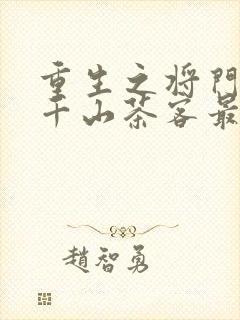 重生之将門
千山茶客最
趙智勇